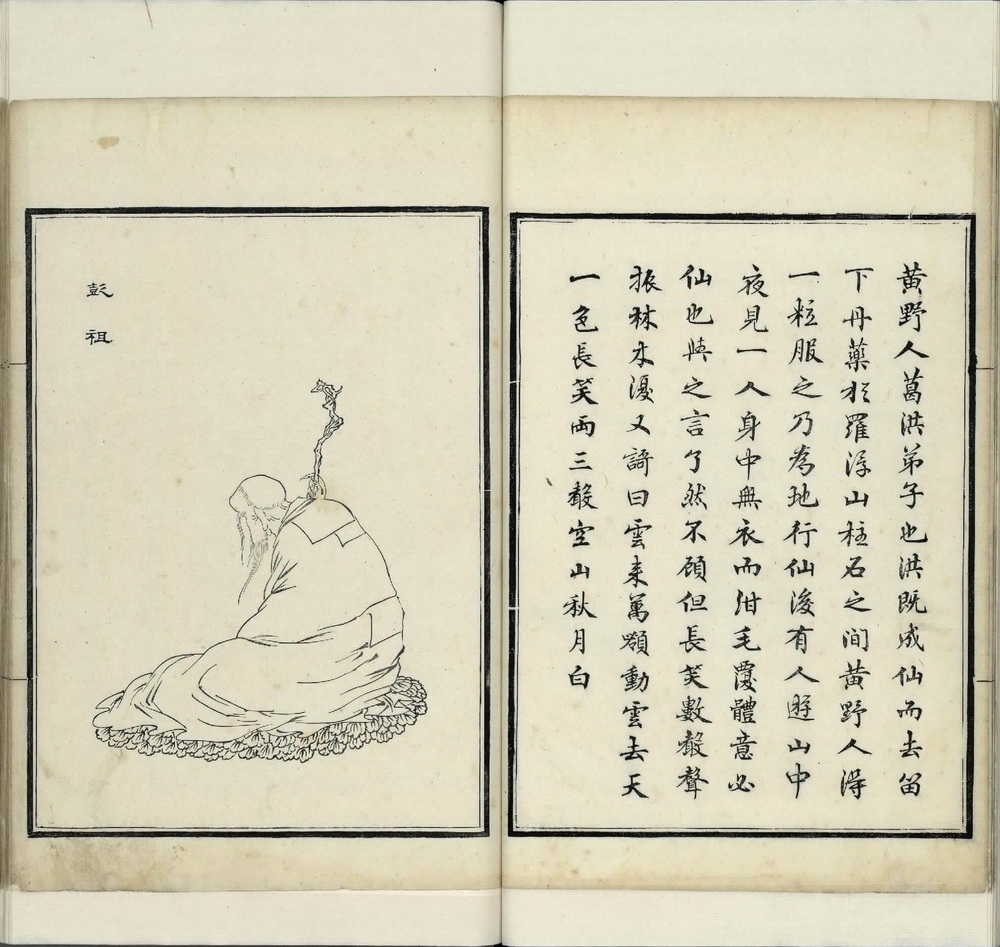 黄野人葛洪弟子也洪既成仙而去留
下丹藥於羅浮山柱石之间黄野人得
一粒服之乃為地行仙後有人遊山中
夜見一人身中無衣而紺毛覆體意必
仙也與之言了然不顧但長笑數聲聲
振林木復又謌曰雲来萬嶺動雲去天
一色長笑両三聲空山秋月白
彭祖